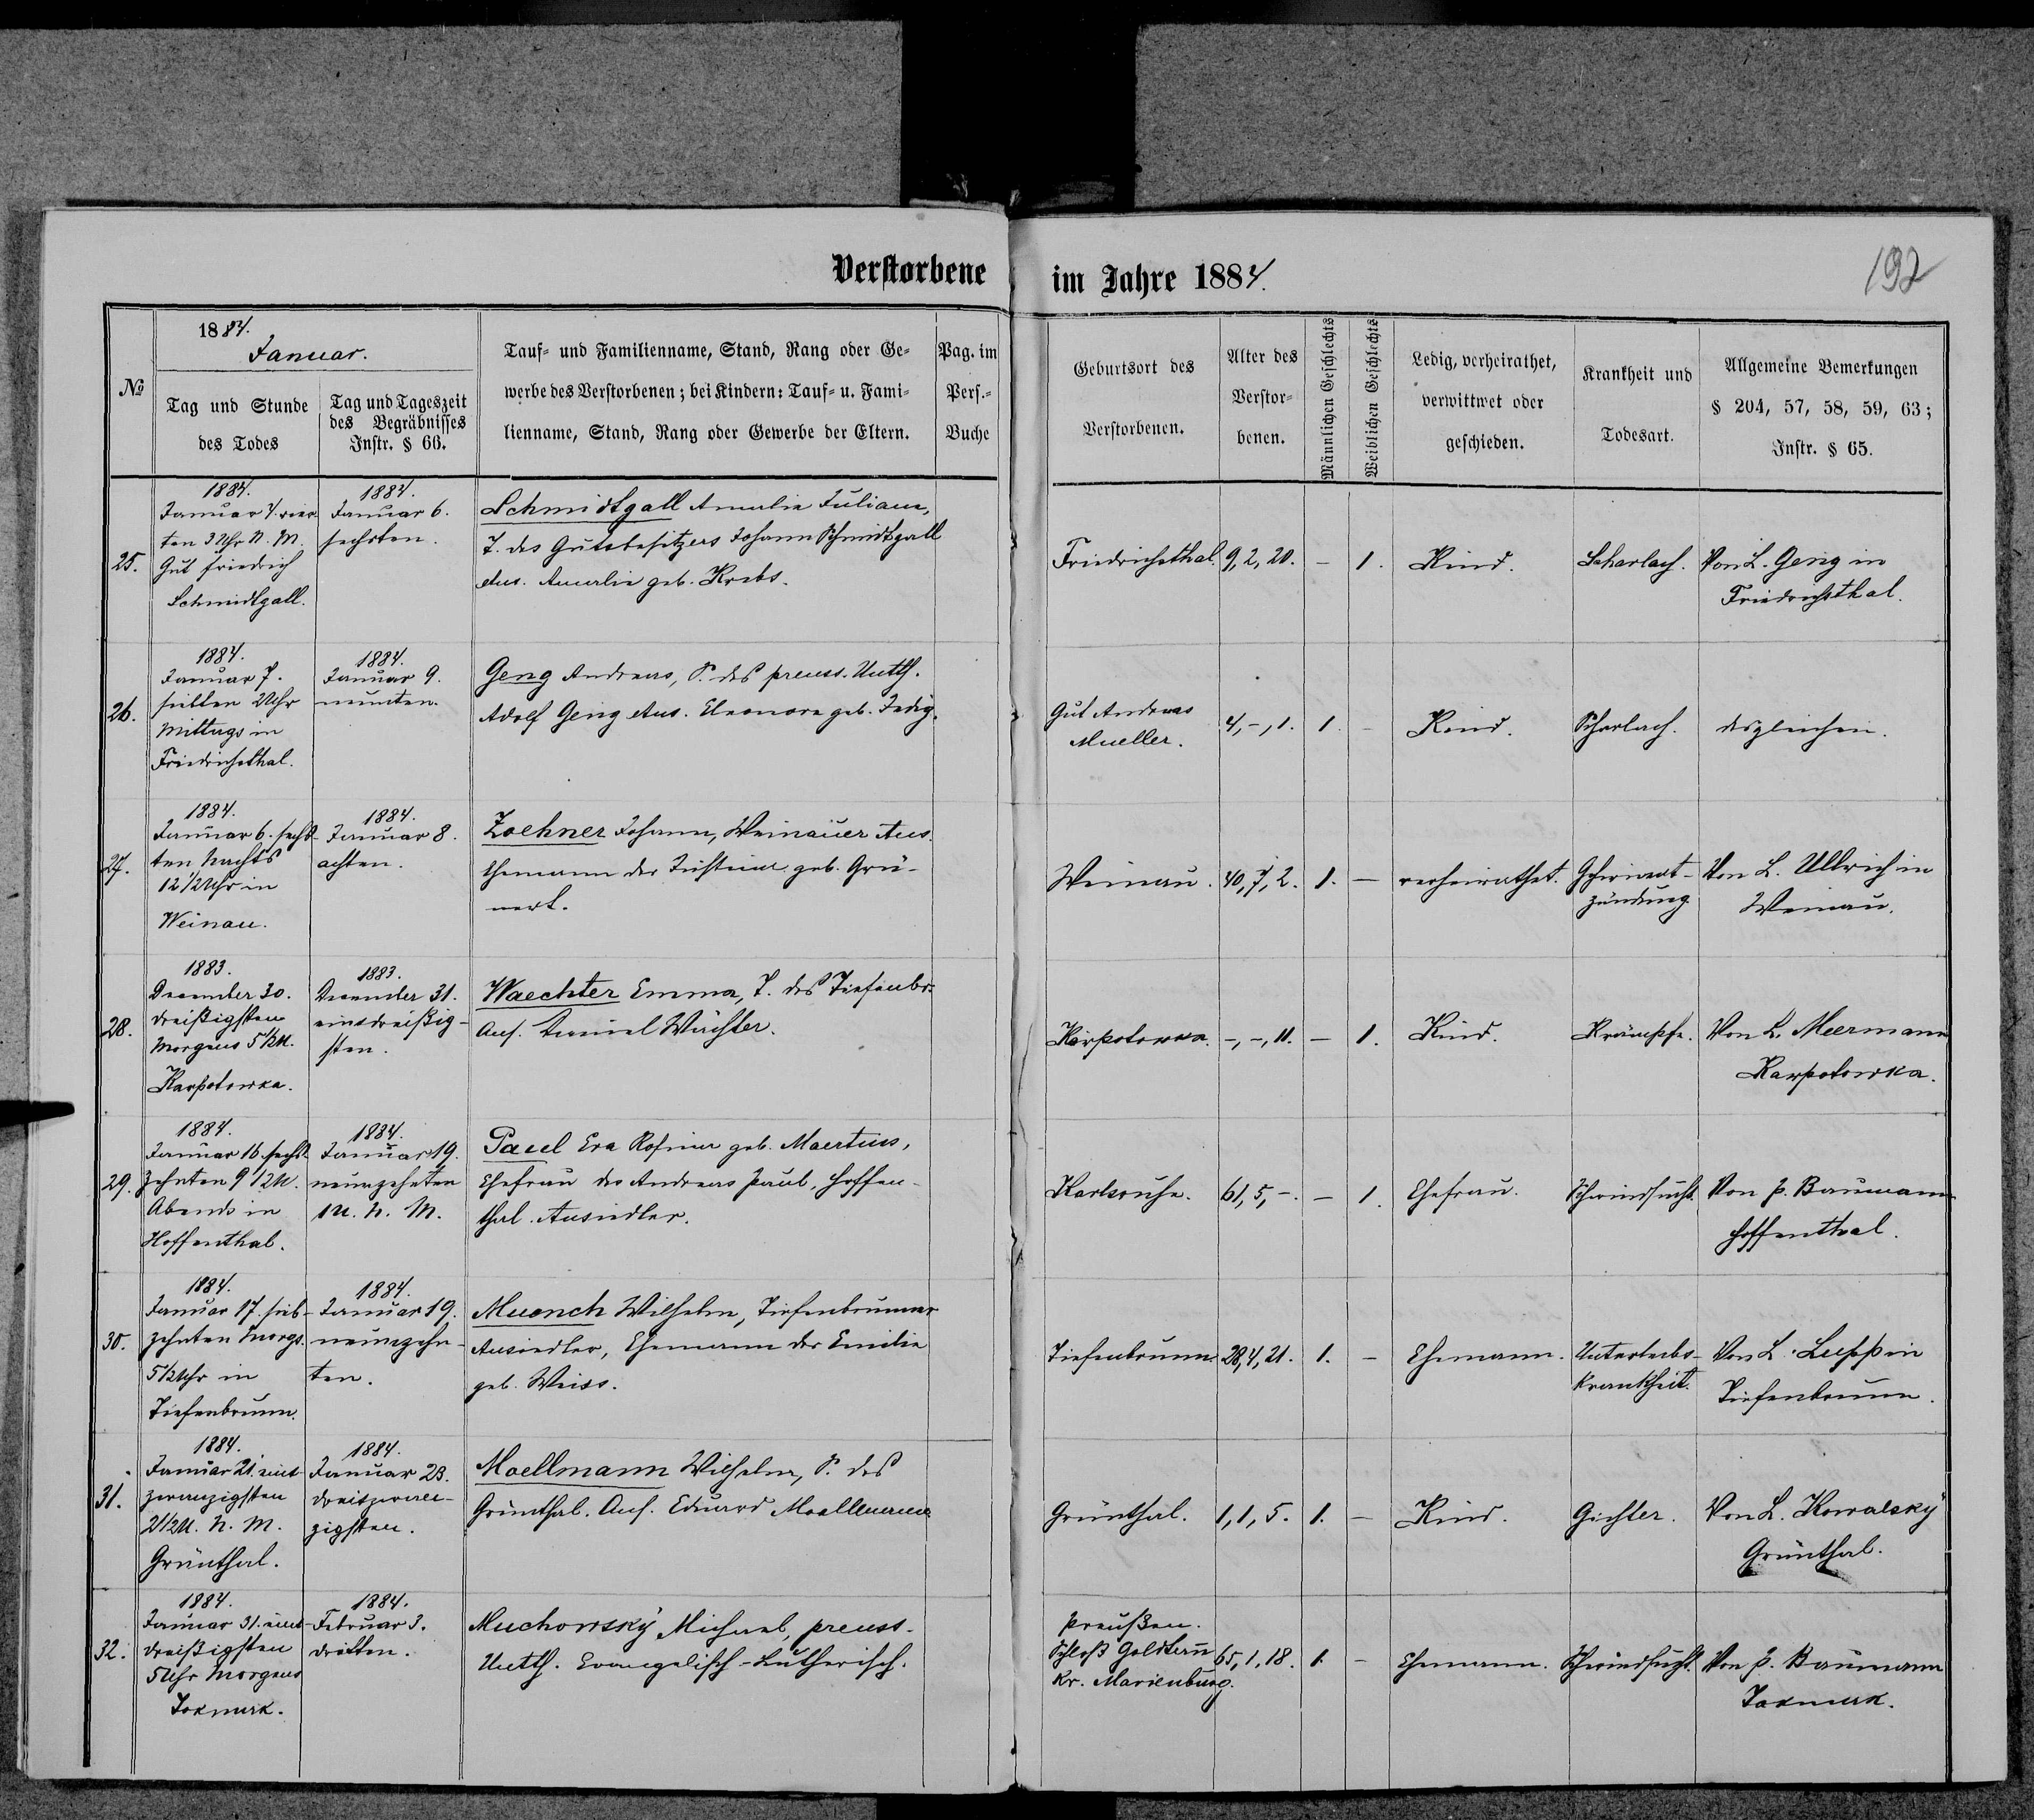 Verstorbene im Jahre 1884.
192
1884.
Januar.
№
Tag und Stunde
des Todes
Tag und Tageszeit
des Begräbnisses
Instr. § 66.
Tauf- und Familienname, Stand, Rang oder Ge-
werbe des Verstorbenen; bei Kindern: Tauf- u. Fami-
lienname, Stand, Rang oder Gewerbe der Eltern.
Pag. im
Pers.-
Buche
Geburtsort des
Verstorbenen.
Alter des
Verstor-
benen.
Männlichen Geschlechts
Weiblichen Geschlechts
Ledig, verheirathet,
verwittwet oder
geschieden.
Krankheit und
Todesart.
Allgemeine Bemerkungen
§ 204, 57, 58, 59, 63;
Instr. § 65.
25.
1884.
Januar 4. vier-
ten 3 Uhr N. M.
Gut Friedrich
Schmidtgall.
1884.
Januar 6.
sechsten.
Schmidtgall Amalie Juliane,
T. des Gutsbesitzers Johann Schmidtgall
Aus. Amalie geb. Krebs.
Friedrichsthal. 9, 2, 20. – 1. Kind. Scharlach. Von L. Geng in
Friedrichsthal.
26.
1884.
Januar 7.
siebten 2 Uhr
Mittags in
Friedrichsthal.
1884.
Januar 9.
neunten.
Geng Andreas, S. des preuss. Untth.
Adolf Geng Aus. Eleonora geb.
Gut Andreas
Mueller.
4, –, 1. 1. – Kind. Scharlach. desgleichen.
27.
1884.
Januar 6. sechs-
ten Nachts
12 1/2 Uhr in
Weinau.
1884.
Januar 8.
achten.
Zoehner Johann, Weinauer Aus.
Ehemann der Justine geb. Grü-
nert.
Weinau. 40, 7, 2. 1. – verheirathet.
zündung.
Von L. Ullrich in
Weinau.
28.
1883.
December 30.
dreißigsten
Morgens 5 1/2 U.
Karpotowka.
1883.
December 31.
einsdreißig-
sten.
Waechter Emma, T. des Tiefenbr.
Ans. Daniel Wächter.
Karpotowka. –, –, 11. – 1. Kind. Krämpfe. Von L. Meermann
Karpotowka.
29.
1884.
Januar 16. sechs-
zehnten 9 1/2 U.
Abends in
Hoffenthal.
1884.
Januar 19.
neunzehnten
1 U. N. M.
Paul Eva Rosina geb. Maertins,
Ehefrau des Andreas Paul, Hoffen-
thal. Ansiedler.
Karlsruhe. 61, 5, –. – 1. Ehefrau. Schwindsucht. Von P. Baumann
Hoffenthal.
30.
1884.
Januar 17. sieb-
zehnten Morgs.
5 1/2 Uhr in
Tiefenbrunn.
1884.
Januar 19.
neunzehn-
ten.
Muench Wilhelm, Tiefenbrunner
Ansiedler, Ehemann der Emilie
geb. Weiss.
Tiefenbrunn. 28, 4, 21. 1. – Ehemann. Unterleibs-
krankheit.
Von L. Lupp in
Tiefenbrunn.
31.
1884.
Januar 21. eins-
zwanzigsten
2 1/2 U. N. M.
Grünthal.
1884.
Januar 23.
dreizwan-
zigsten.
Moellmann Wilhelm, S. des
Grünthal. Ans. Eduard Moellmann
Grünthal. 1, 1, 5. 1. – Kind. Gichter. Von L. Kowalsky
Grünthal.
32.
1884.
Januar 31. eins-
dreißigsten
5 Uhr Morgens
Tokmak.
1884.
Februar 3.
dritten.
Muchowsky Michael, preuss.
Untth. Evangelisch-Lutherisch.
Preußen.
Schloß Goldtern
Kr. Marienburg.
65, 1, 18. 1. – Ehemann. Schwindsucht. Von P. Baumann
Tokmak.